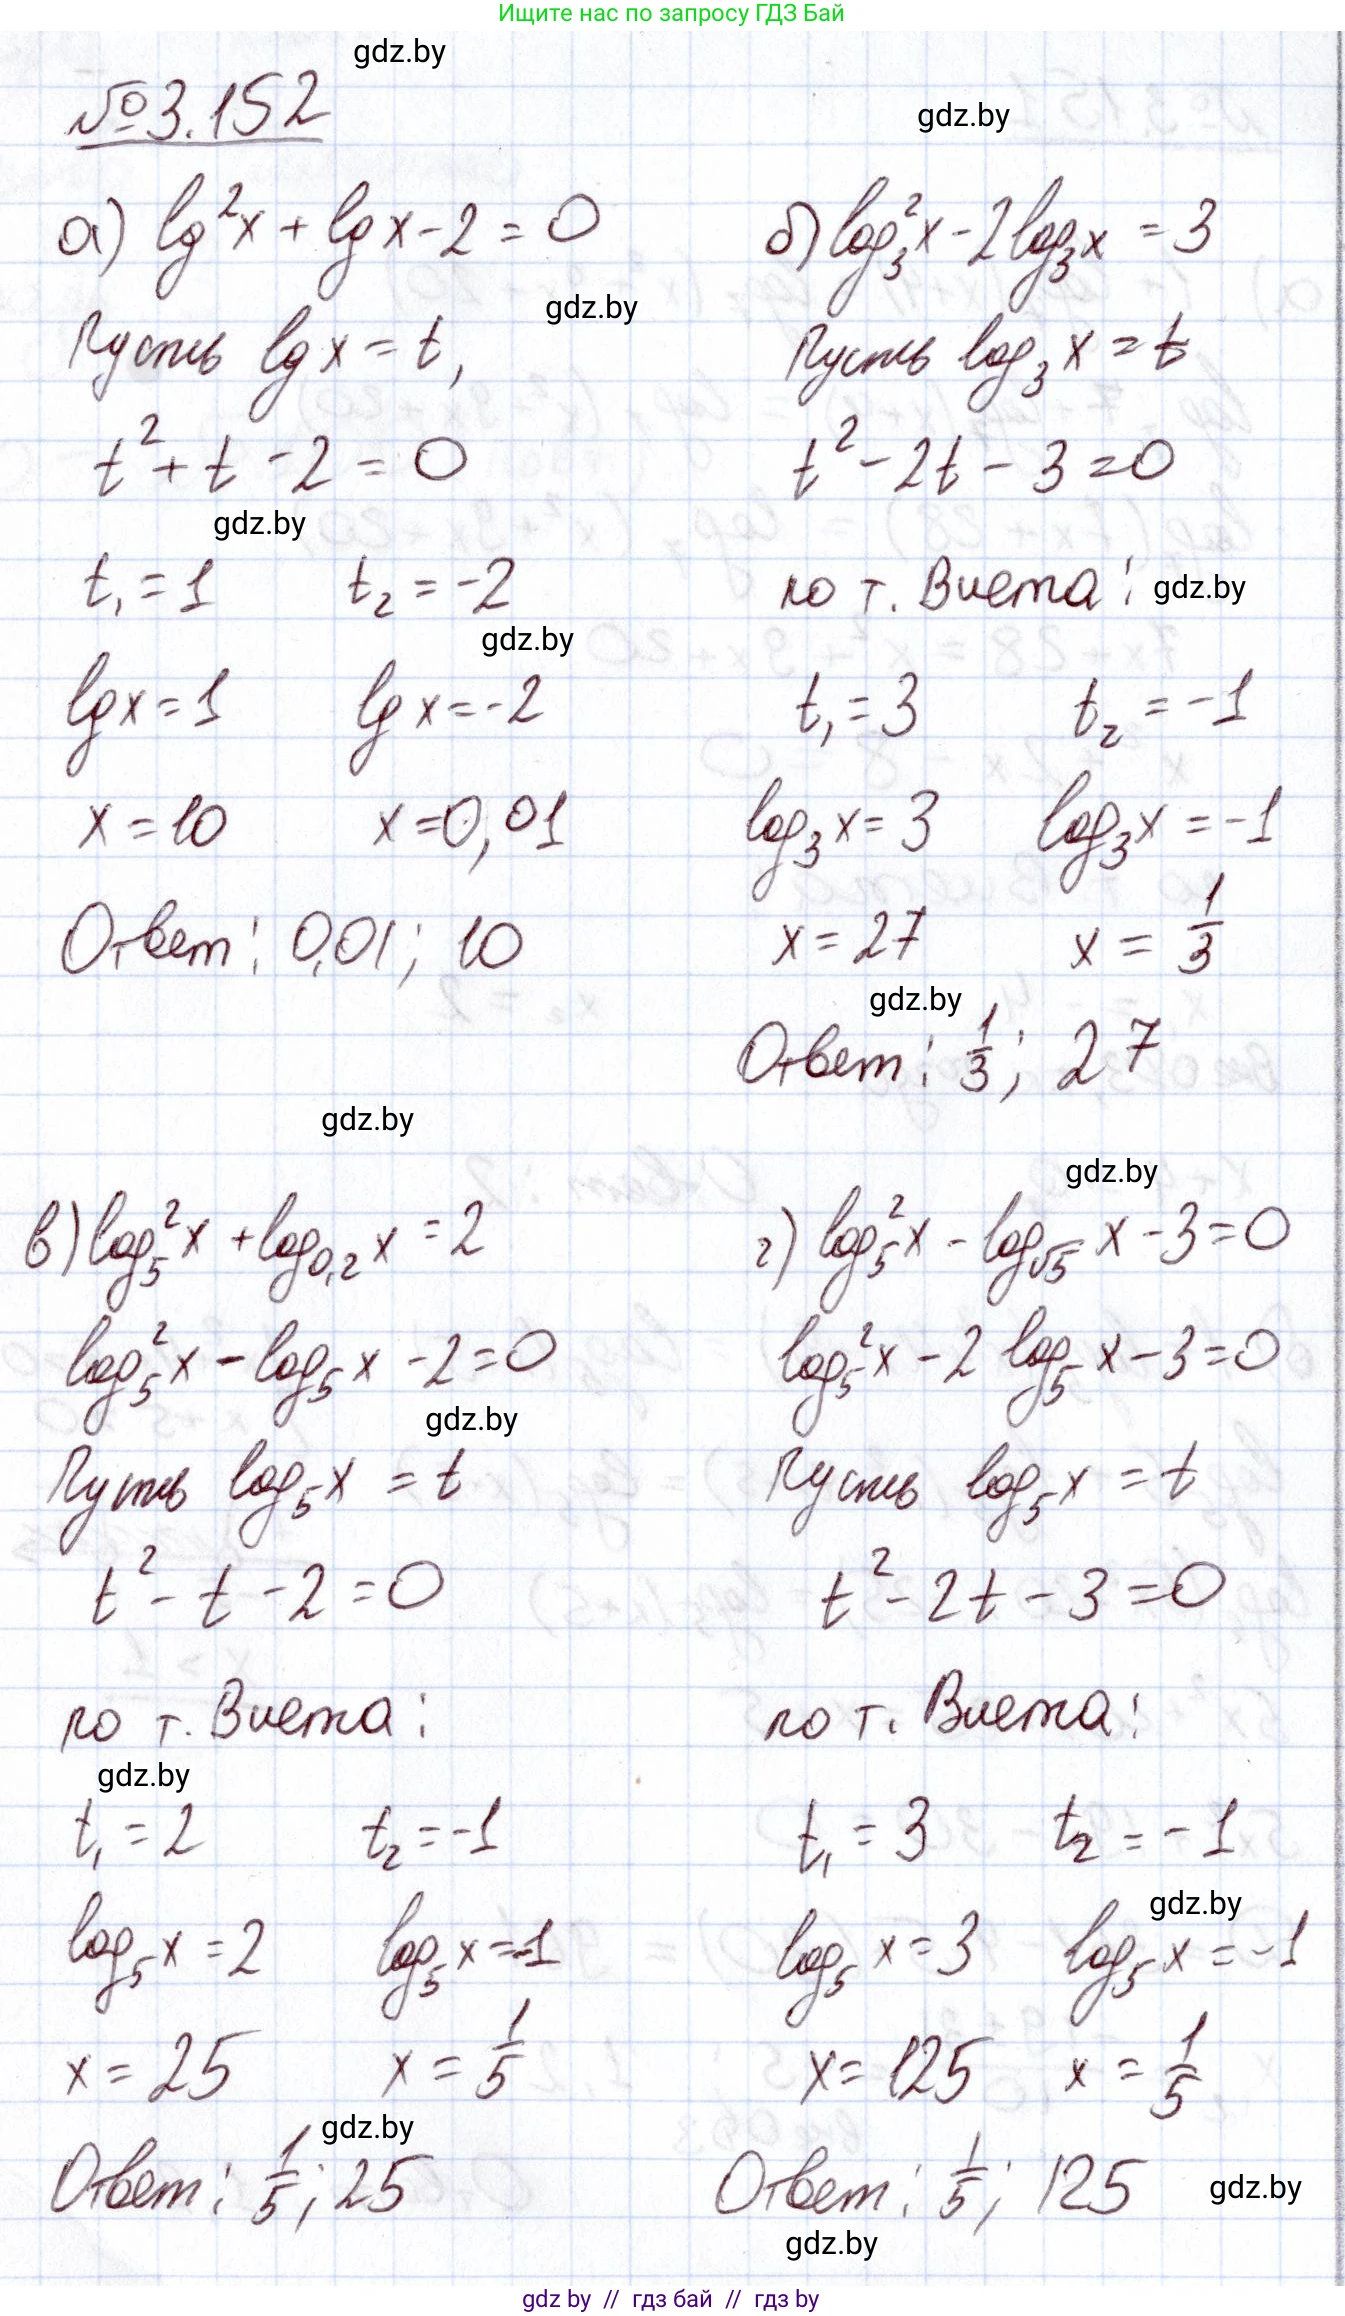 Ищите нас по запросу ГДЗ Бай
gdz.by
№3.152
gdz.by
а) lg²x + lgx - 2 = 0
gdz.by
Пусть lgx = t,
t² + t - 2 = 0
gdz.by
t₁ = 1 t₂ = -2
gdz.by
lgx = 1 lgx = -2
x = 10 x = 0,01
Ответ: 0,01; 10
б) log₃²x - 2log₃x = 3
Пусть log₃x = t
t² - 2t - 3 = 0
по т. Виета: gdz.by
t₁ = 3 t₂ = -1
log₃x = 3 log₃x = -1
x = 27 x = 1/3
gdz.by
Ответ: 1/3; 27
gdz.by
в) log₅²x + log₀,₂x = 2
log₅²x - log₅x - 2 = 0
gdz.by
Пусть log₅x = t
t² - t - 2 = 0
по т. Виета:
gdz.by
t₁ = 2 t₂ = -1
log₅x = 2 log₅x = -1
x = 25 x = 1/5
gdz.by
Ответ: 1/5; 25
gdz.by
г) log₅²x - log_√5 x - 3 = 0
log₅²x - 2log₅x - 3 = 0
Пусть log₅x = t
t² - 2t - 3 = 0
по т. Виета:
t₁ = 3 t₂ = -1
gdz.by
log₅x = 3 log₅x = -1
x = 125 x = 1/5
Ответ: 1/5; 125
gdz.by
gdz.by
gdz by // гдз бай // гдз by